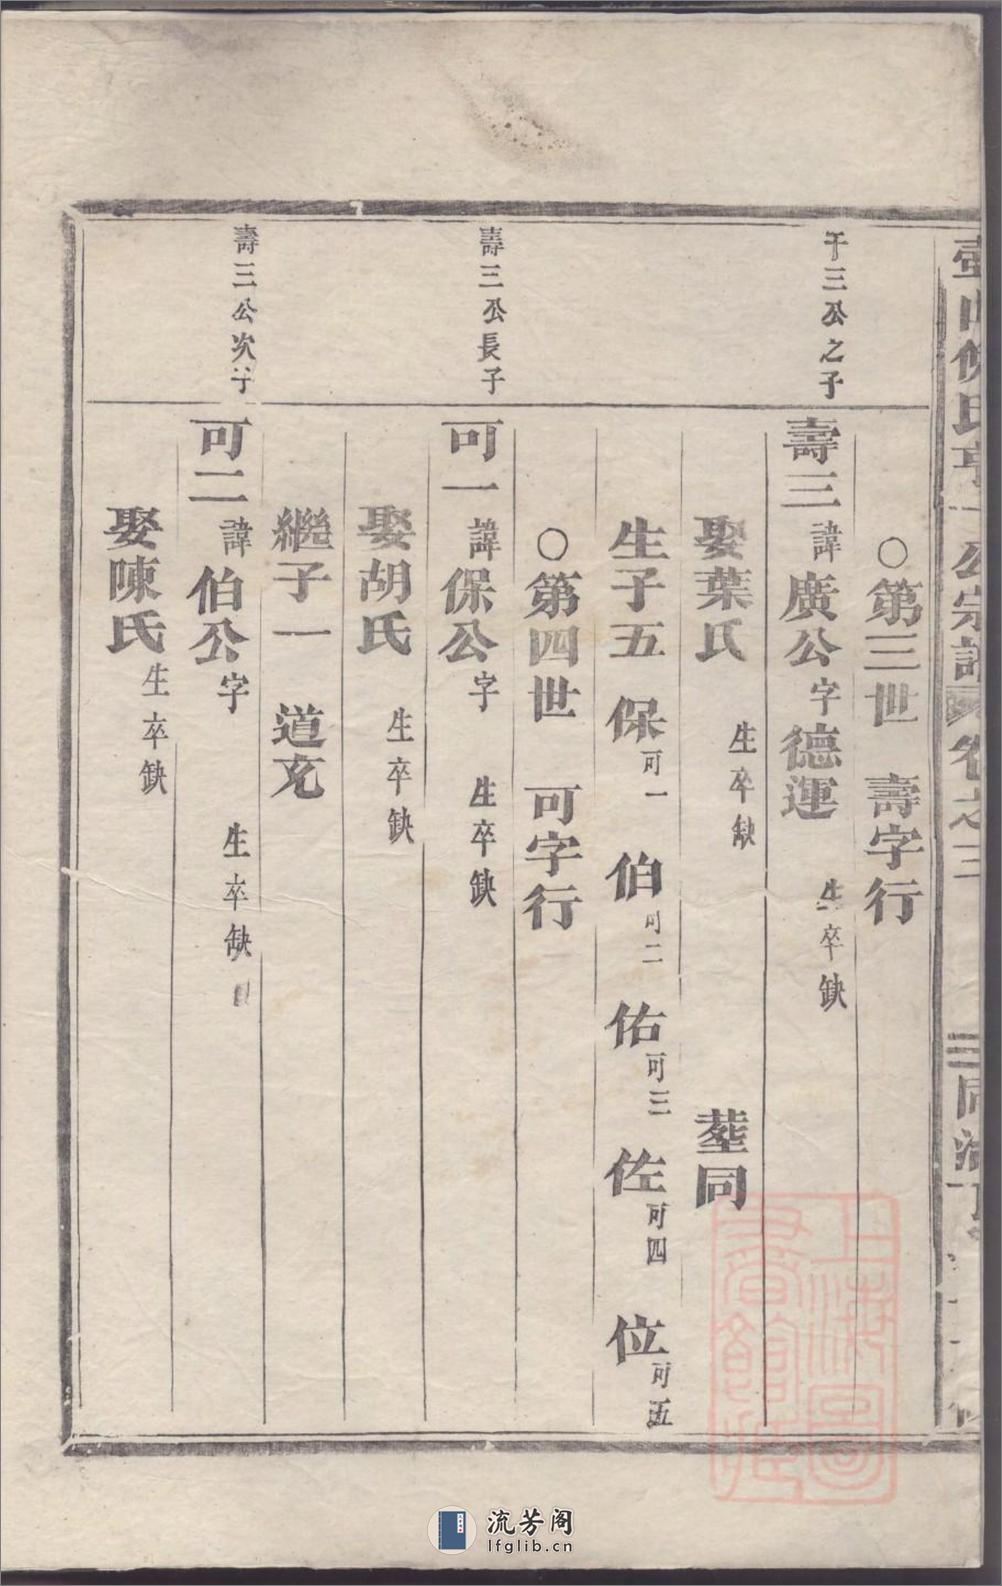 氏亨一公宗譜 卷之三
三 同治
〇第三世 壽字行
千三公之子
壽三 諱廣公字德運 生卒缺
娶葉氏 生卒缺 塟同
生子五 保可一 伯可二 佑可三 佐可四 位可五
〇第四世 可字行
壽三公長子
可一 諱保公字 生卒缺
娶胡氏 生卒缺
繼子一 道充
壽三公次子
可二 諱伯公字 生卒缺
娶陳氏 生卒缺
上海圖書館藏
流芳阁
lfglib.cn